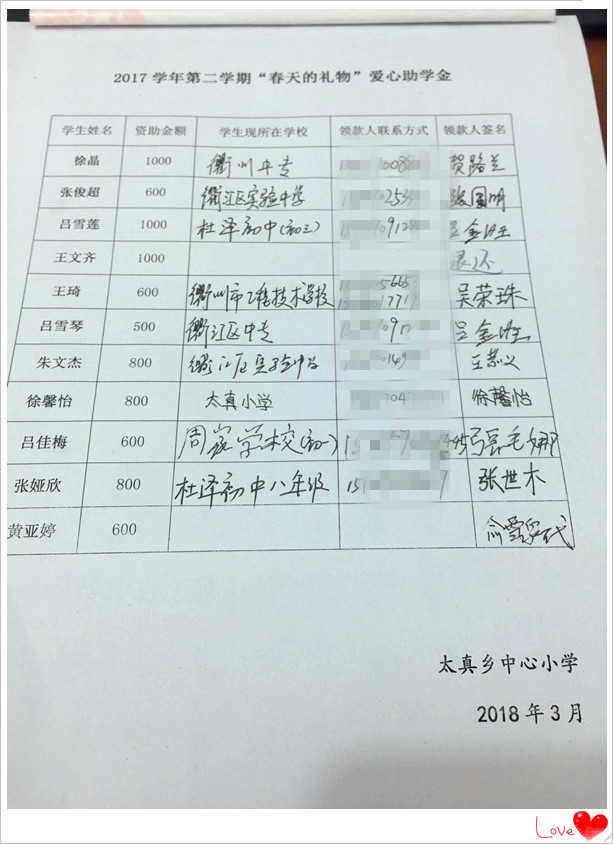 2017 学年第二学期“春天的礼物”爱心助学金
学生姓名 资助金额 学生现所在学校 领款人联系方式 领款人签名
徐晶 1000 衢州中专 贺路兰
张俊超 600 衢江区实验中学 253 张国明
吕雪莲 1000 杜泽初中(初三) 091 吕金旺
王文齐 1000 退还
王琦 600 衢州市工程技术学校 5665 1771 吴荣珠
吕雪琴 500 衢江区中专 091 吕金旺
朱文杰 800 衢江区实验中学 0169
徐馨怡 800 太真小学 04 徐馨怡
吕佳梅 600 周家学校(初一) 15 45
张娅欣 800 杜泽初中八年级 151 7 张世木
黄亚婷 600 代
太真乡中心小学
2018 年 3 月
Love